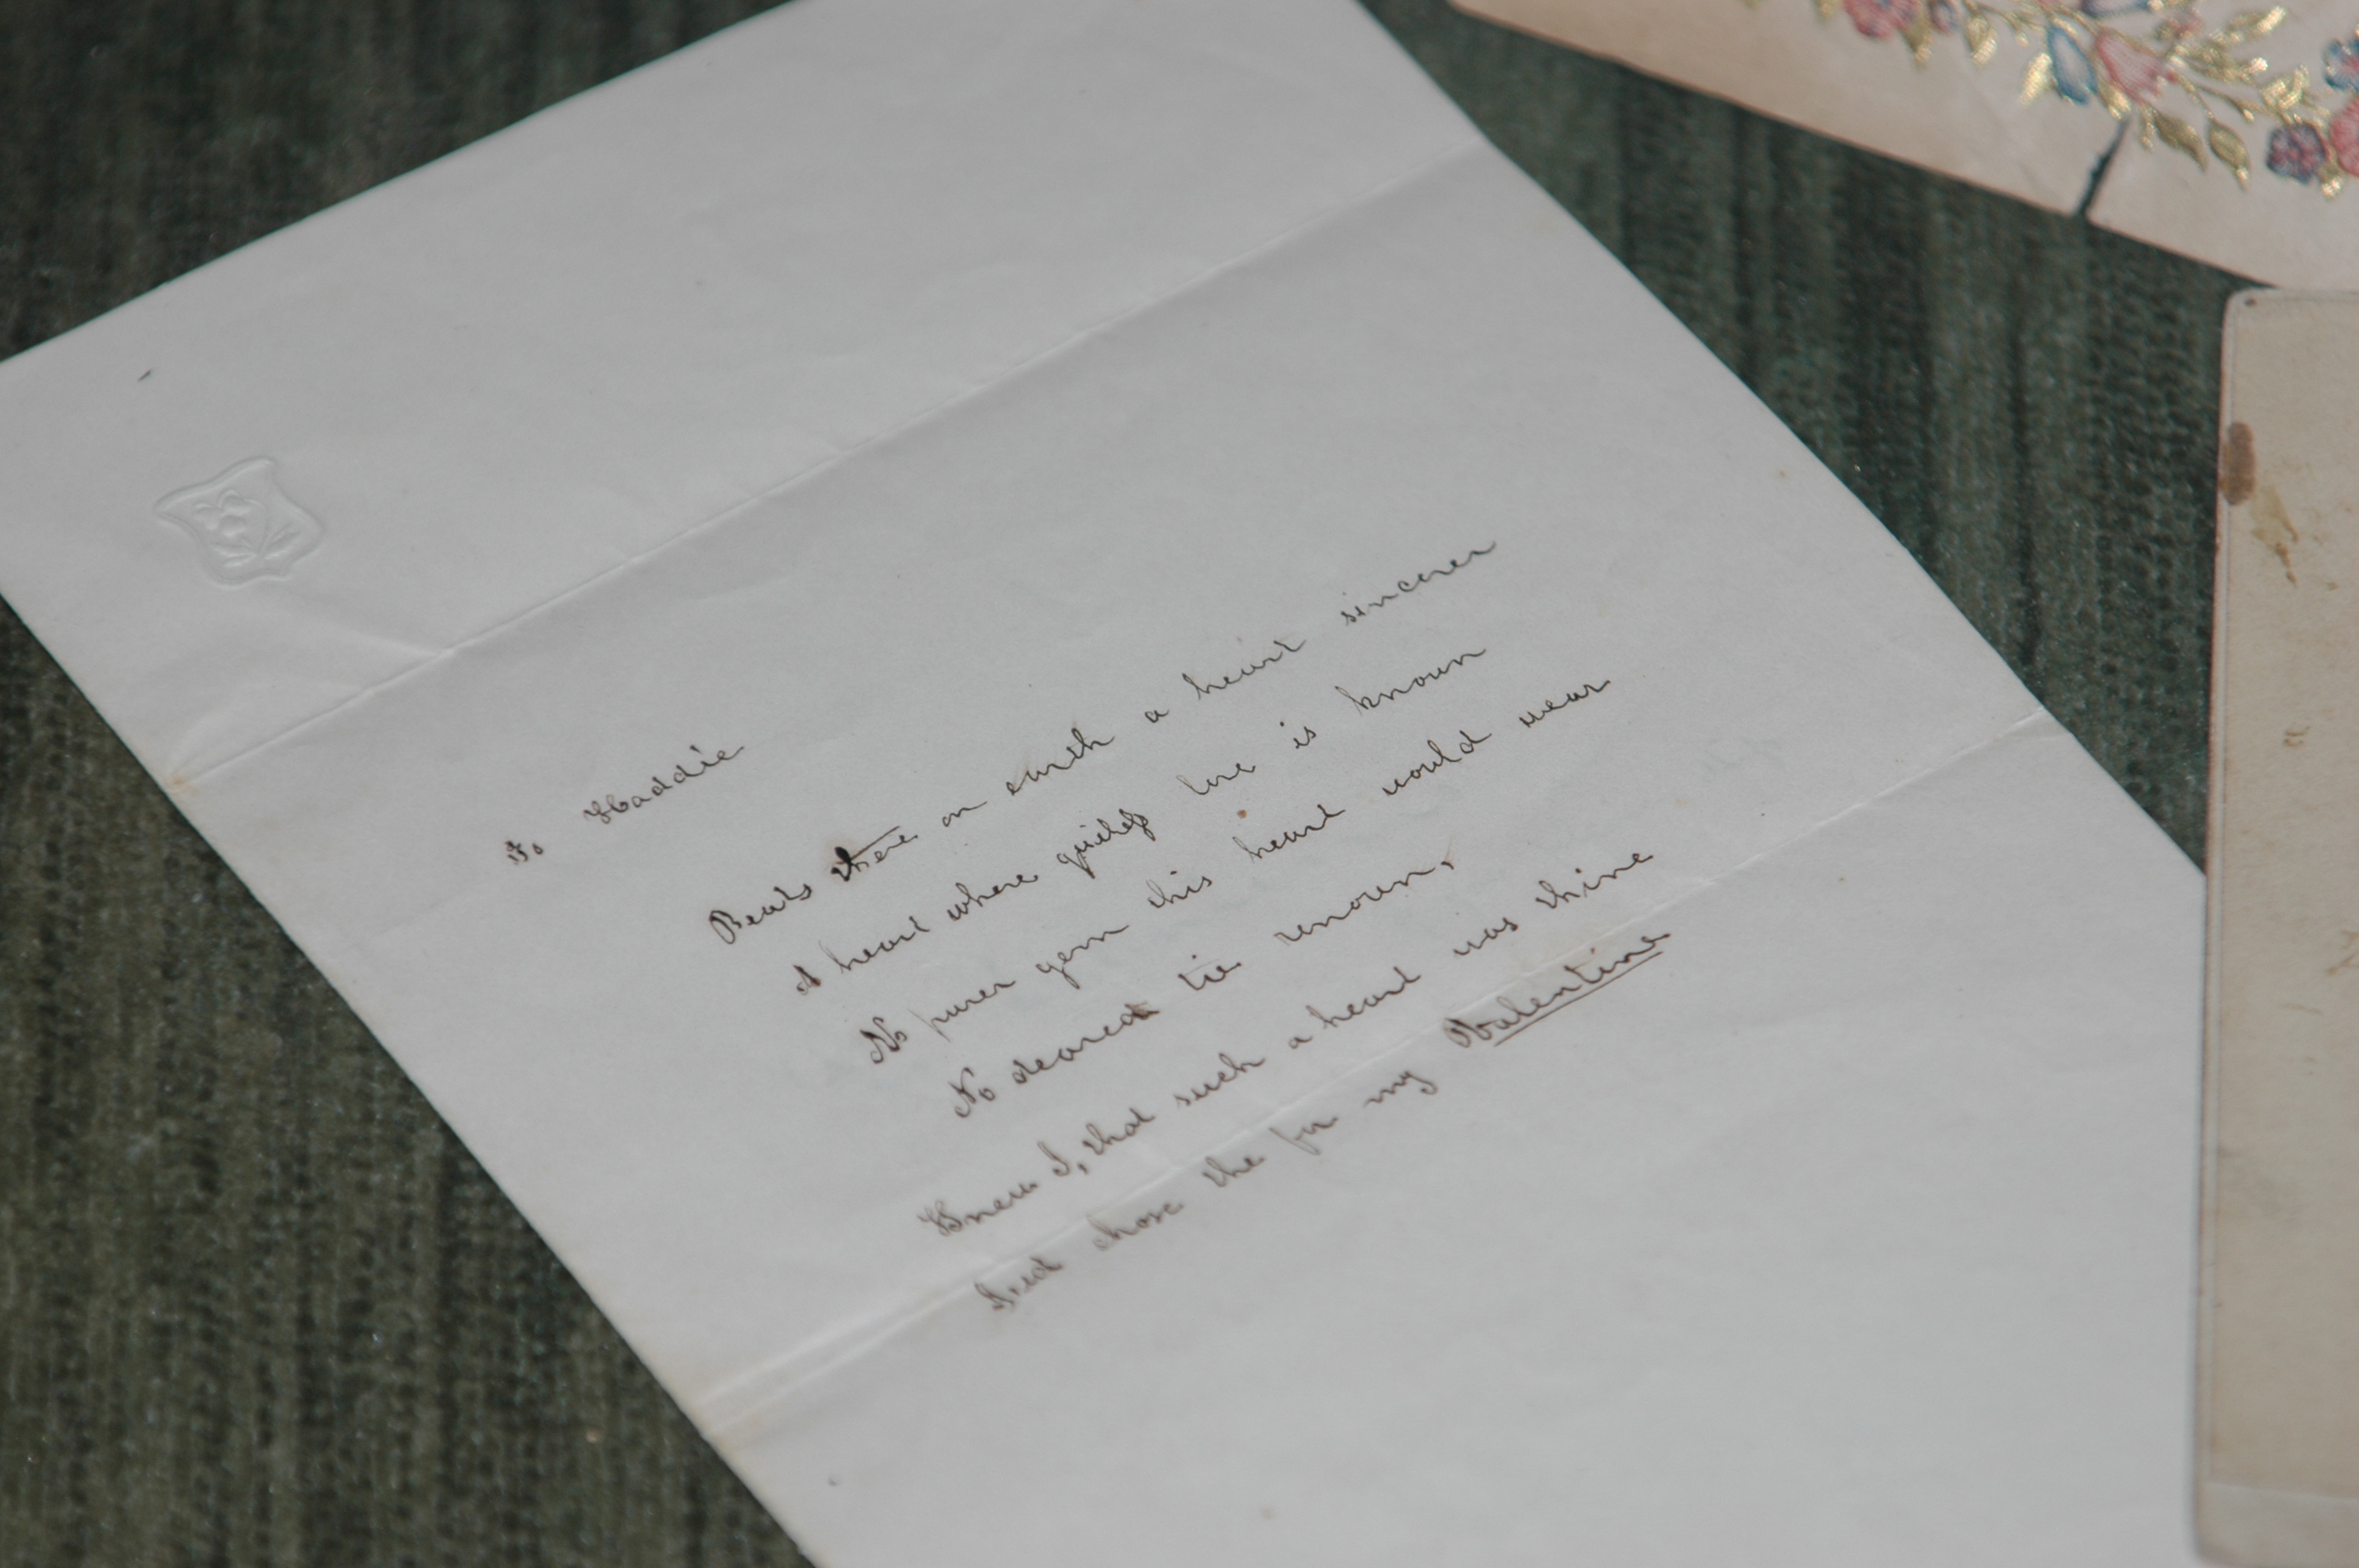 To Haddie
Beats there on earth a heart sincerer
A heart where quiehly love is known
No purer gem this heart would wear
No dearest tie renown,
Knew I, that such a heart was thine
I'ed chose the for my Valentine